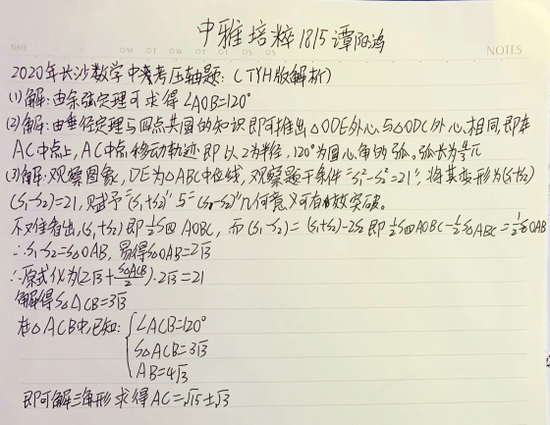 中雅培粹1815谭阳鸿
DATE
NOTES
2020年长沙数学中考压轴题:(TYH版解析)
(1)解:由余弦定理可求得∠AOB=120°
(2)解:由垂径定理与四点共圆的知识即可推出△ODE外心与△ODC外心相同,即在
AC中点上,AC中点移动轨迹即以2为半径,120°为圆心角的弧。弧长为4/3π
(3)解:观察图象,DE为△ABC中位线,观察题干条件"S₁²-S₂²=21",将其变形为(S₁+S₂)
(S₁-S₂)=21,赋予"(S₁+S₂)"与"(S₁-S₂)"几何意义可有效突破。
不难看出,(S₁+S₂)即1/2S四AOBC,而(S₁-S₂)=(S₁+S₂)-2S₂即1/2S四AOBC-1/2S△ABC=1/2S△OAB
∴S₁-S₂=S△OAB,易得S△OAB=2√3
∴原式化为(2√3+S△ACB/2)·2√3=21
解得S△ACB=3√3
在△ACB中,已知:
∠ACB=120°
S△ACB=3√3
AB=4√3
即可解三角形求得AC=√15±√3